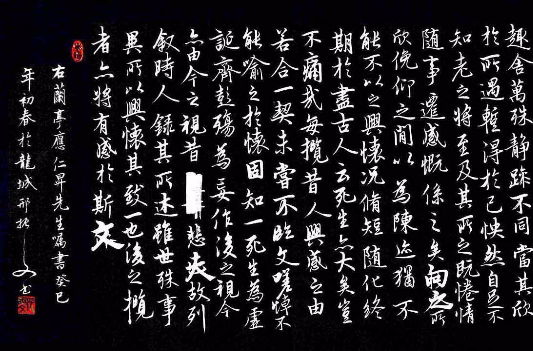 趣舍萬殊靜躁不同當其欣
於所遇暫得於己怏然自足不
知老之將至及其所之既惓情
隨事遷感慨係之矣向之所
欣俛仰之閒以為陳迹猶不
能不以之興懷況脩短隨化終
期於盡古人云死生亦大矣豈
不痛哉每攬昔人興感之由
若合一契未嘗不臨文嗟悼不
能喻之於懷固知一死生為虛
誕齊彭殤為妄作後之視今
亦由今之視昔悲夫故列
敘時人錄其所述雖世殊事
異所以興懷其致一也後之攬
者亦將有感於斯文
右蘭亭應仁昇先生囑書癸巳
年初春於龍城邢書